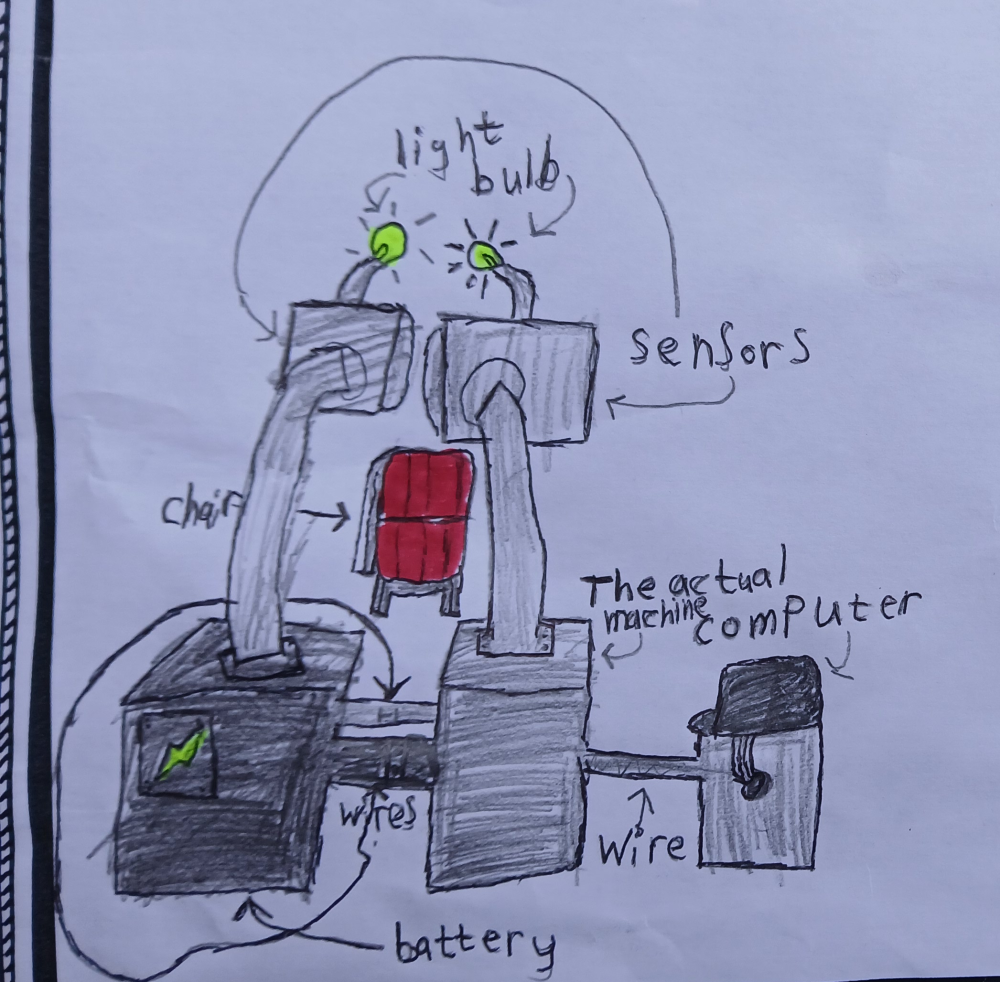 light
bulb
sensors
chair
The actual
machine
computer
wires
wire
battery